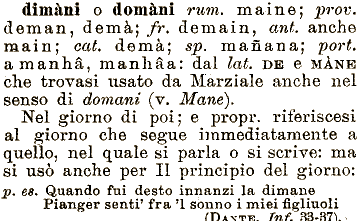 dimàni o domàni rum. maine; prov.
deman, demà; fr. demain, ant. anche
main; cat. demà; sp. mañana; port.
amanhâ, manhâa: dal lat. DE e MÀNE
che trovasi usato da Marziale anche nel
senso di domani (v. Mane).
Nel giorno di poi; e propr. riferiscesi
al giorno che segue immediatamente a
quello, nel quale si parla o si scrive: ma
si usò anche per Il principio del giorno:
p. es. Quando fui desto innanzi la dimane
Pianger senti' fra 'l sonno i miei figliuoli
(DANTE. Inf. 33-37).